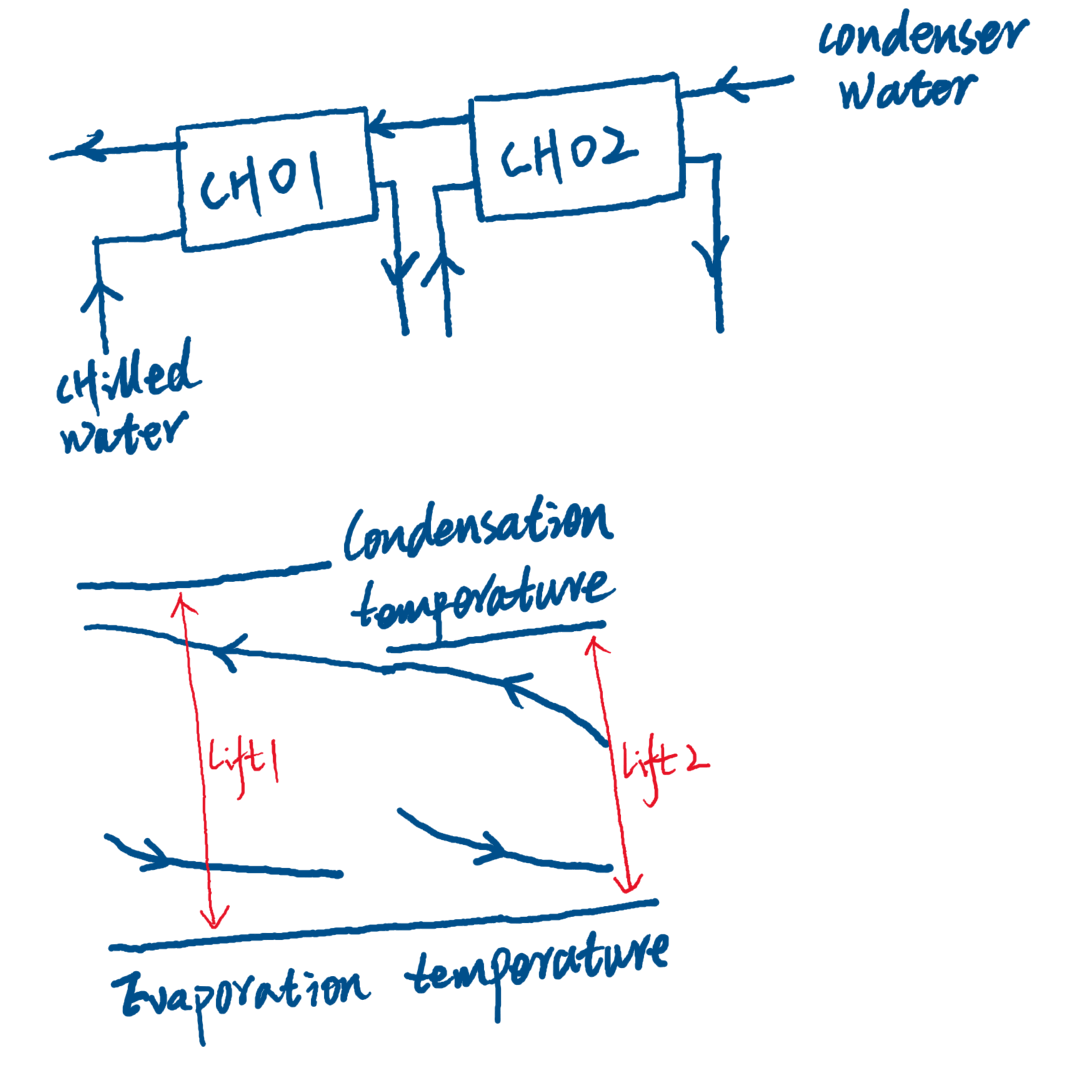 condenser
water
CH01
CH02
cHilled
water
Condensation
temporature
Lift1
Lift2
Evaporation temporature